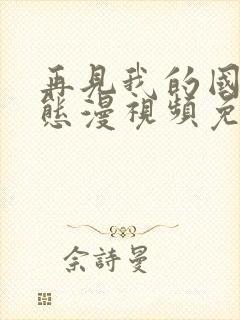 再見我的國
態漫視頻免
佘詩曼